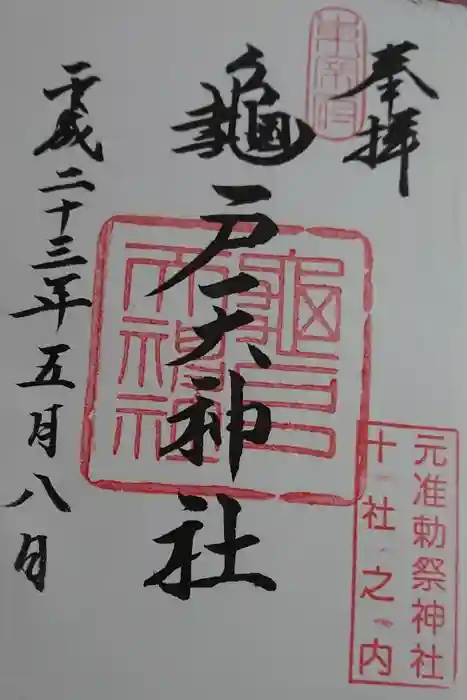 奉拝
元准勅祭神社
十社之内
龜戸天神社
龜戸
天神社
平成二十三年五月八日